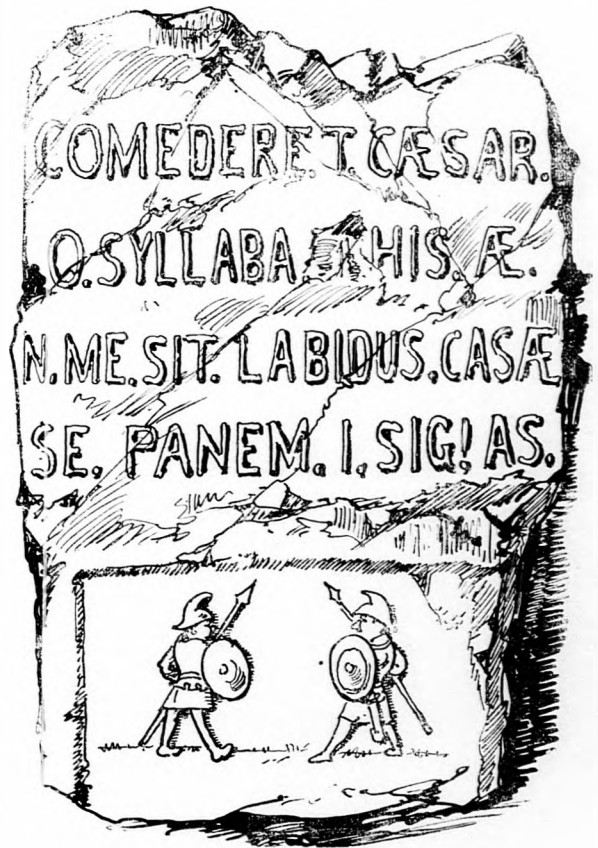 COMEDERE.T.CÆSAR.
O.SYLLABA HIS.Æ.
N.ME.SIT.LABIDUS.CASÆ
SE.PANEM.I.SIG!AS.